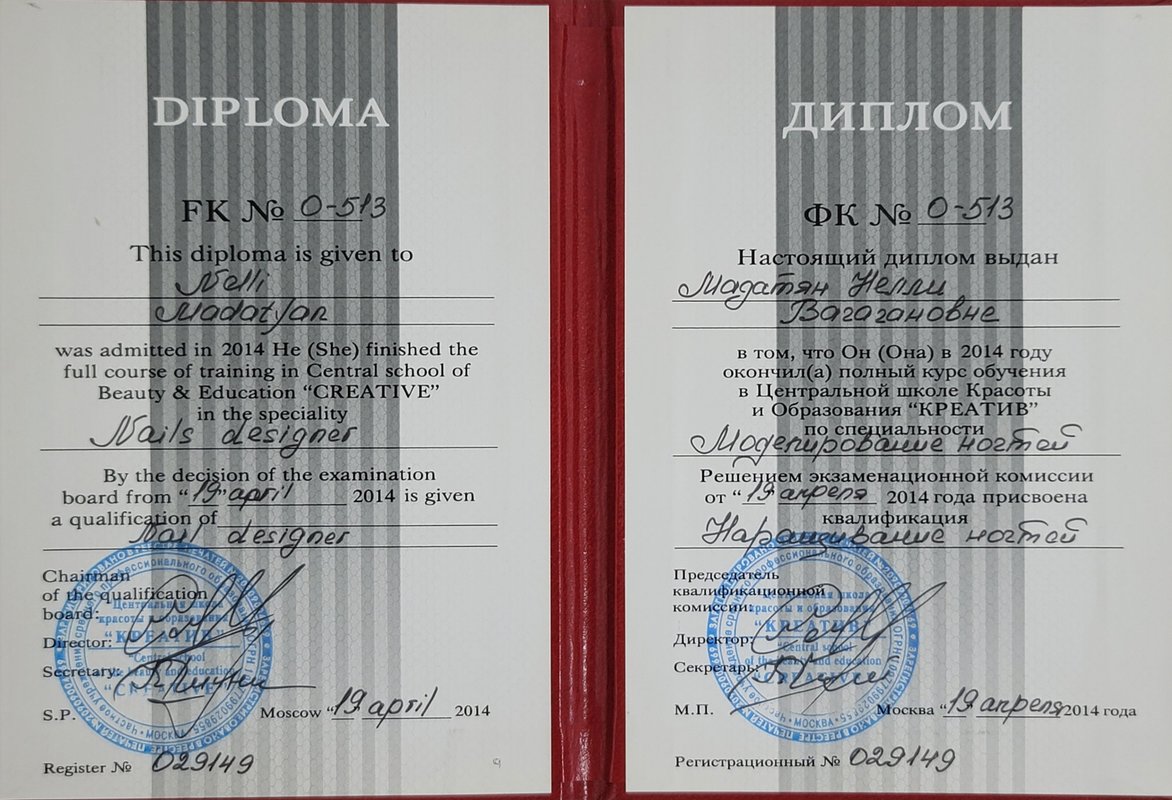 DIPLOMA
FK № 0-513
This diploma is given to
Nelli
Madatyan
was admitted in 2014 He (She) finished the
full course of training in Central school of
Beauty & Education “CREATIVE”
in the speciality
Nails designer
By the decision of the examination
board from “19” april 2014 is given
a qualification of
Nail designer
Chairman
of the qualification
board:
Director:
Secretary:
S.P. Moscow “19 april 2014
Register № 029149
Центральная школа
красоты и образования
“КРЕАТИВ”
Central school
of the beauty and education
ДИПЛОМ
ФК № 0-513
Настоящий диплом выдан
Мадатян Нелли
Вагагановне
в том, что Он (Она) в 2014 году
окончил(а) полный курс обучения
в Центральной школе Красоты
и Образования “КРЕАТИВ”
по специальности
Моделирование ногтей
Решением экзаменационной комиссии
от “19 апреля 2014 года присвоена
квалификация
Наращивание ногтей
Председатель
квалификационной
комиссии:
Директор:
Секретарь:
М.П. Москва “19 апреля 2014 года
Регистрационный № 029149
красоты и образования
“КРЕАТИВ”
Central school
of the beauty and education
МОСКВА